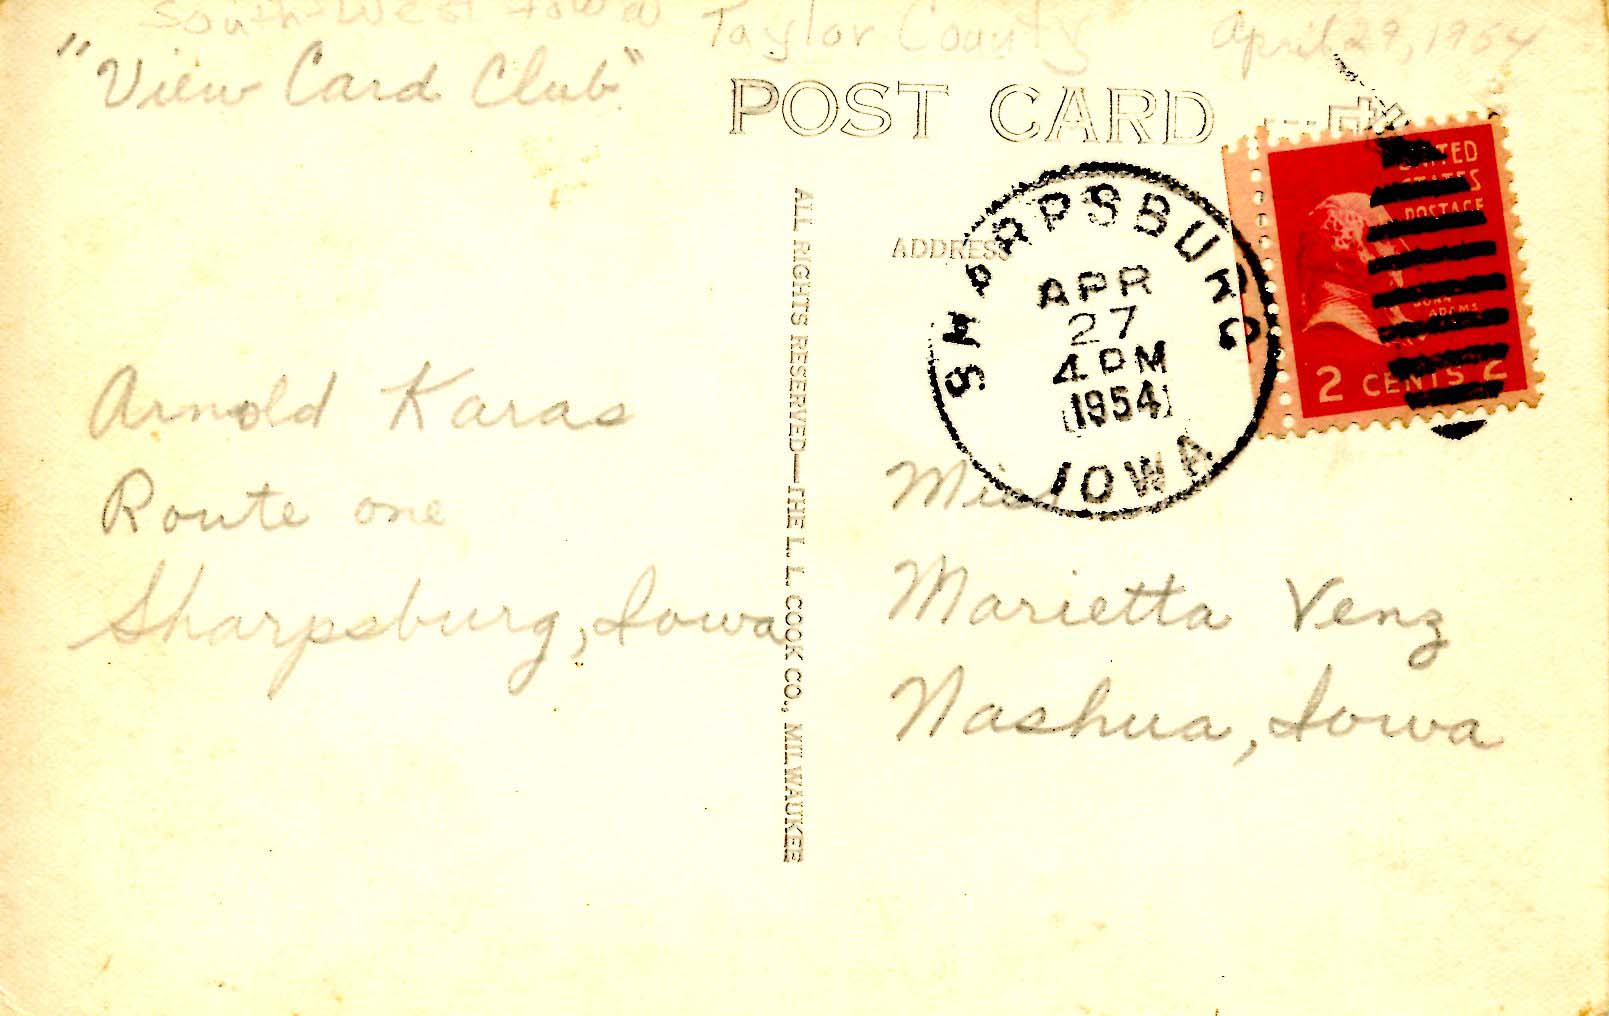 South-West Iowa Taylor County April 29, 1954
"View Card Club"
POST CARD
ALL RIGHTS RESERVED—THE L. L. COOK CO., MILWAUKEE
ADDRESS
SHARPSBURG
APR
27
4 PM
1954
IOWA
UNITED
STATES
POSTAGE
JOHN
ADAMS
2 CENTS 2
Arnold Karas
Route one
Sharpsburg, Iowa
Miss
Marietta Venz
Nashua, Iowa